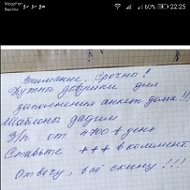 60% 22:25
Внимание. Срочно!
Нужны девочки для
заполнения анкет дома!!!
Шаблоны дадим
З/п от 4700 в день
Ставьте +++ в коммент
Отвечу, всё скину!!!